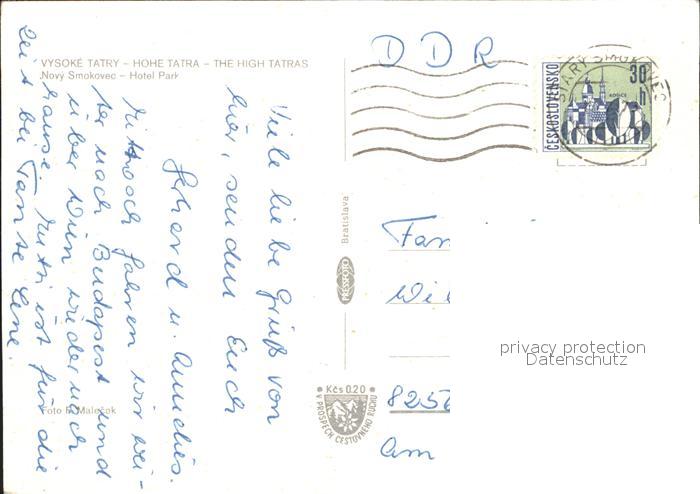 VYSOKÉ TATRY – HOHE TATRA – THE HIGH TATRAS
Nový Smokovec – Hotel Park
Viele liebe Grüße von
hier, senden Euch
Erhard u. Annelies.
Mittwoch fahren wir wei-
ter nach Budapest und
über Wien wieder nach
hause. Mutti ist für die
Zeit bei Tante Lene.
Foto K. Malečok
Bratislava
PRESSFOTO
Kčs 0,20
V PROSPĚCH CESTOVNÉHO RUCHU
DDR
STARÝ SMOKOVEC
ČESKOSLOVENSKO
30 h
KOŠICE
Fam
Wil
825
Am
privacy protection
Datenschutz